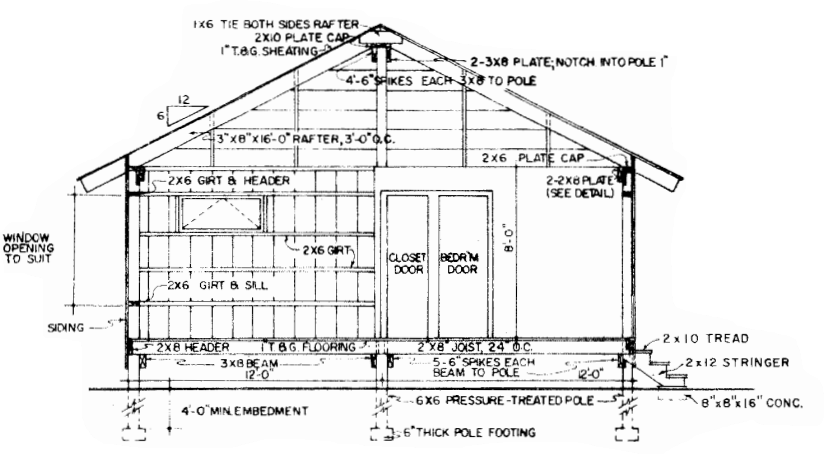 1X6 TIE BOTH SIDES RAFTER
2X10 PLATE CAP
1" T.&G. SHEATING
2-3X8 PLATE; NOTCH INTO POLE 1"
4'-6" SPIKES EACH 3X8 TO POLE
12
6
3"X8"X16'-0" RAFTER, 3'-0" O.C.
2X6 PLATE CAP
2X6 GIRT & HEADER
2-2X8 PLATE
(SEE DETAIL)
WINDOW
OPENING
TO SUIT
2X6 GIRT
CLOSET
DOOR
BEDR'M
DOOR
8'-0"
2X6 GIRT & SILL
SIDING
2X8 HEADER
1" T.&G. FLOORING
2"X8" JOIST, 24" O.C.
2x10 TREAD
3X8 BEAM
5-6" SPIKES EACH
BEAM TO POLE
2x12 STRINGER
12'-0"
12'-0"
4'-0" MIN. EMBEDMENT
6X6 PRESSURE-TREATED POLE
8"x8"x16" CONC.
6" THICK POLE FOOTING